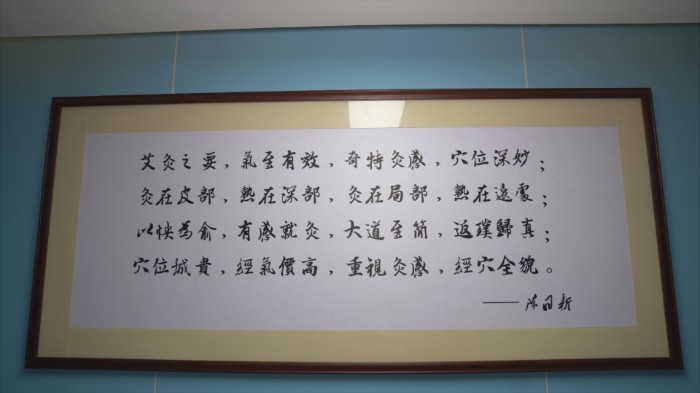 艾灸之要，氣至有效，奇特灸感，穴位深妙；
灸在皮部，熱在深部，灸在局部，熱在遠處；
以怏為俞，有感就灸，大道至簡，返璞歸真；
穴位城貴，經氣價高，重視灸感，經穴全貌。
——陈日新